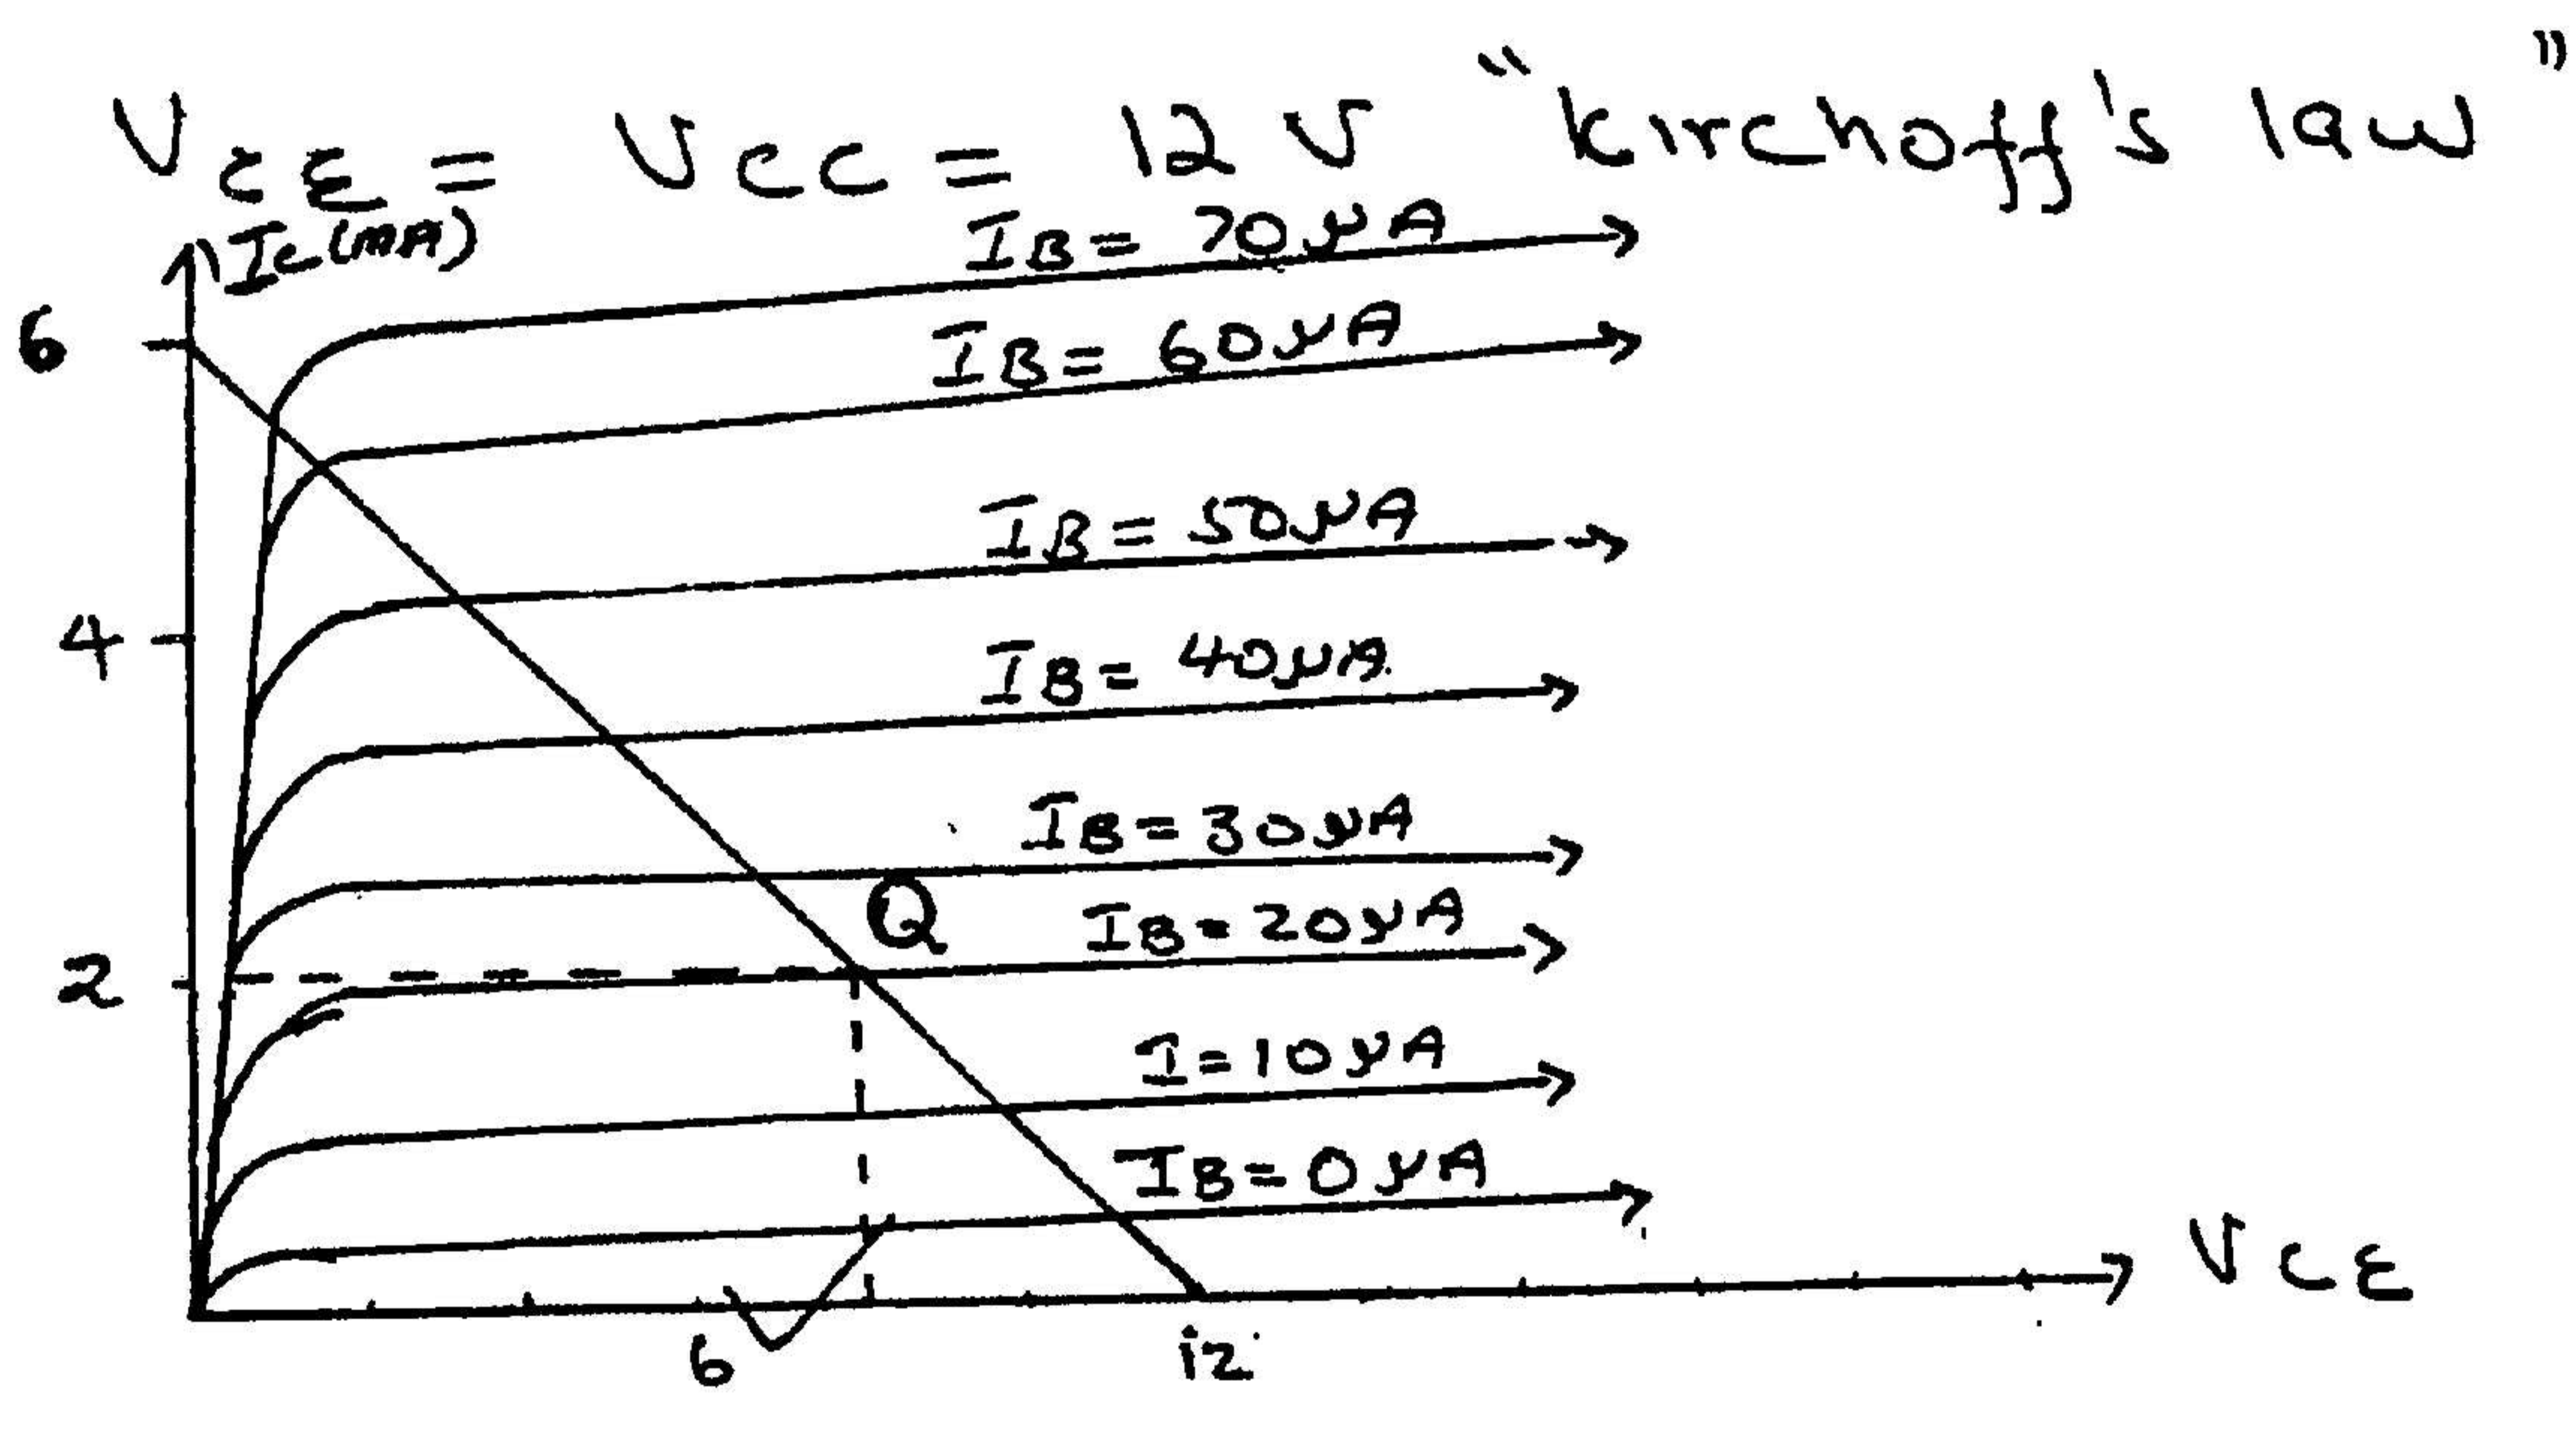 VCE = VCC = 12 V "Kirchoff's law"
Ic (mA)
IB = 70 μA
6
IB = 60 μA
IB = 50 μA
4
IB = 40 μA
IB = 30 μA
Q
IB = 20 μA
2
I = 10 μA
IB = 0 μA
VCE
6
12